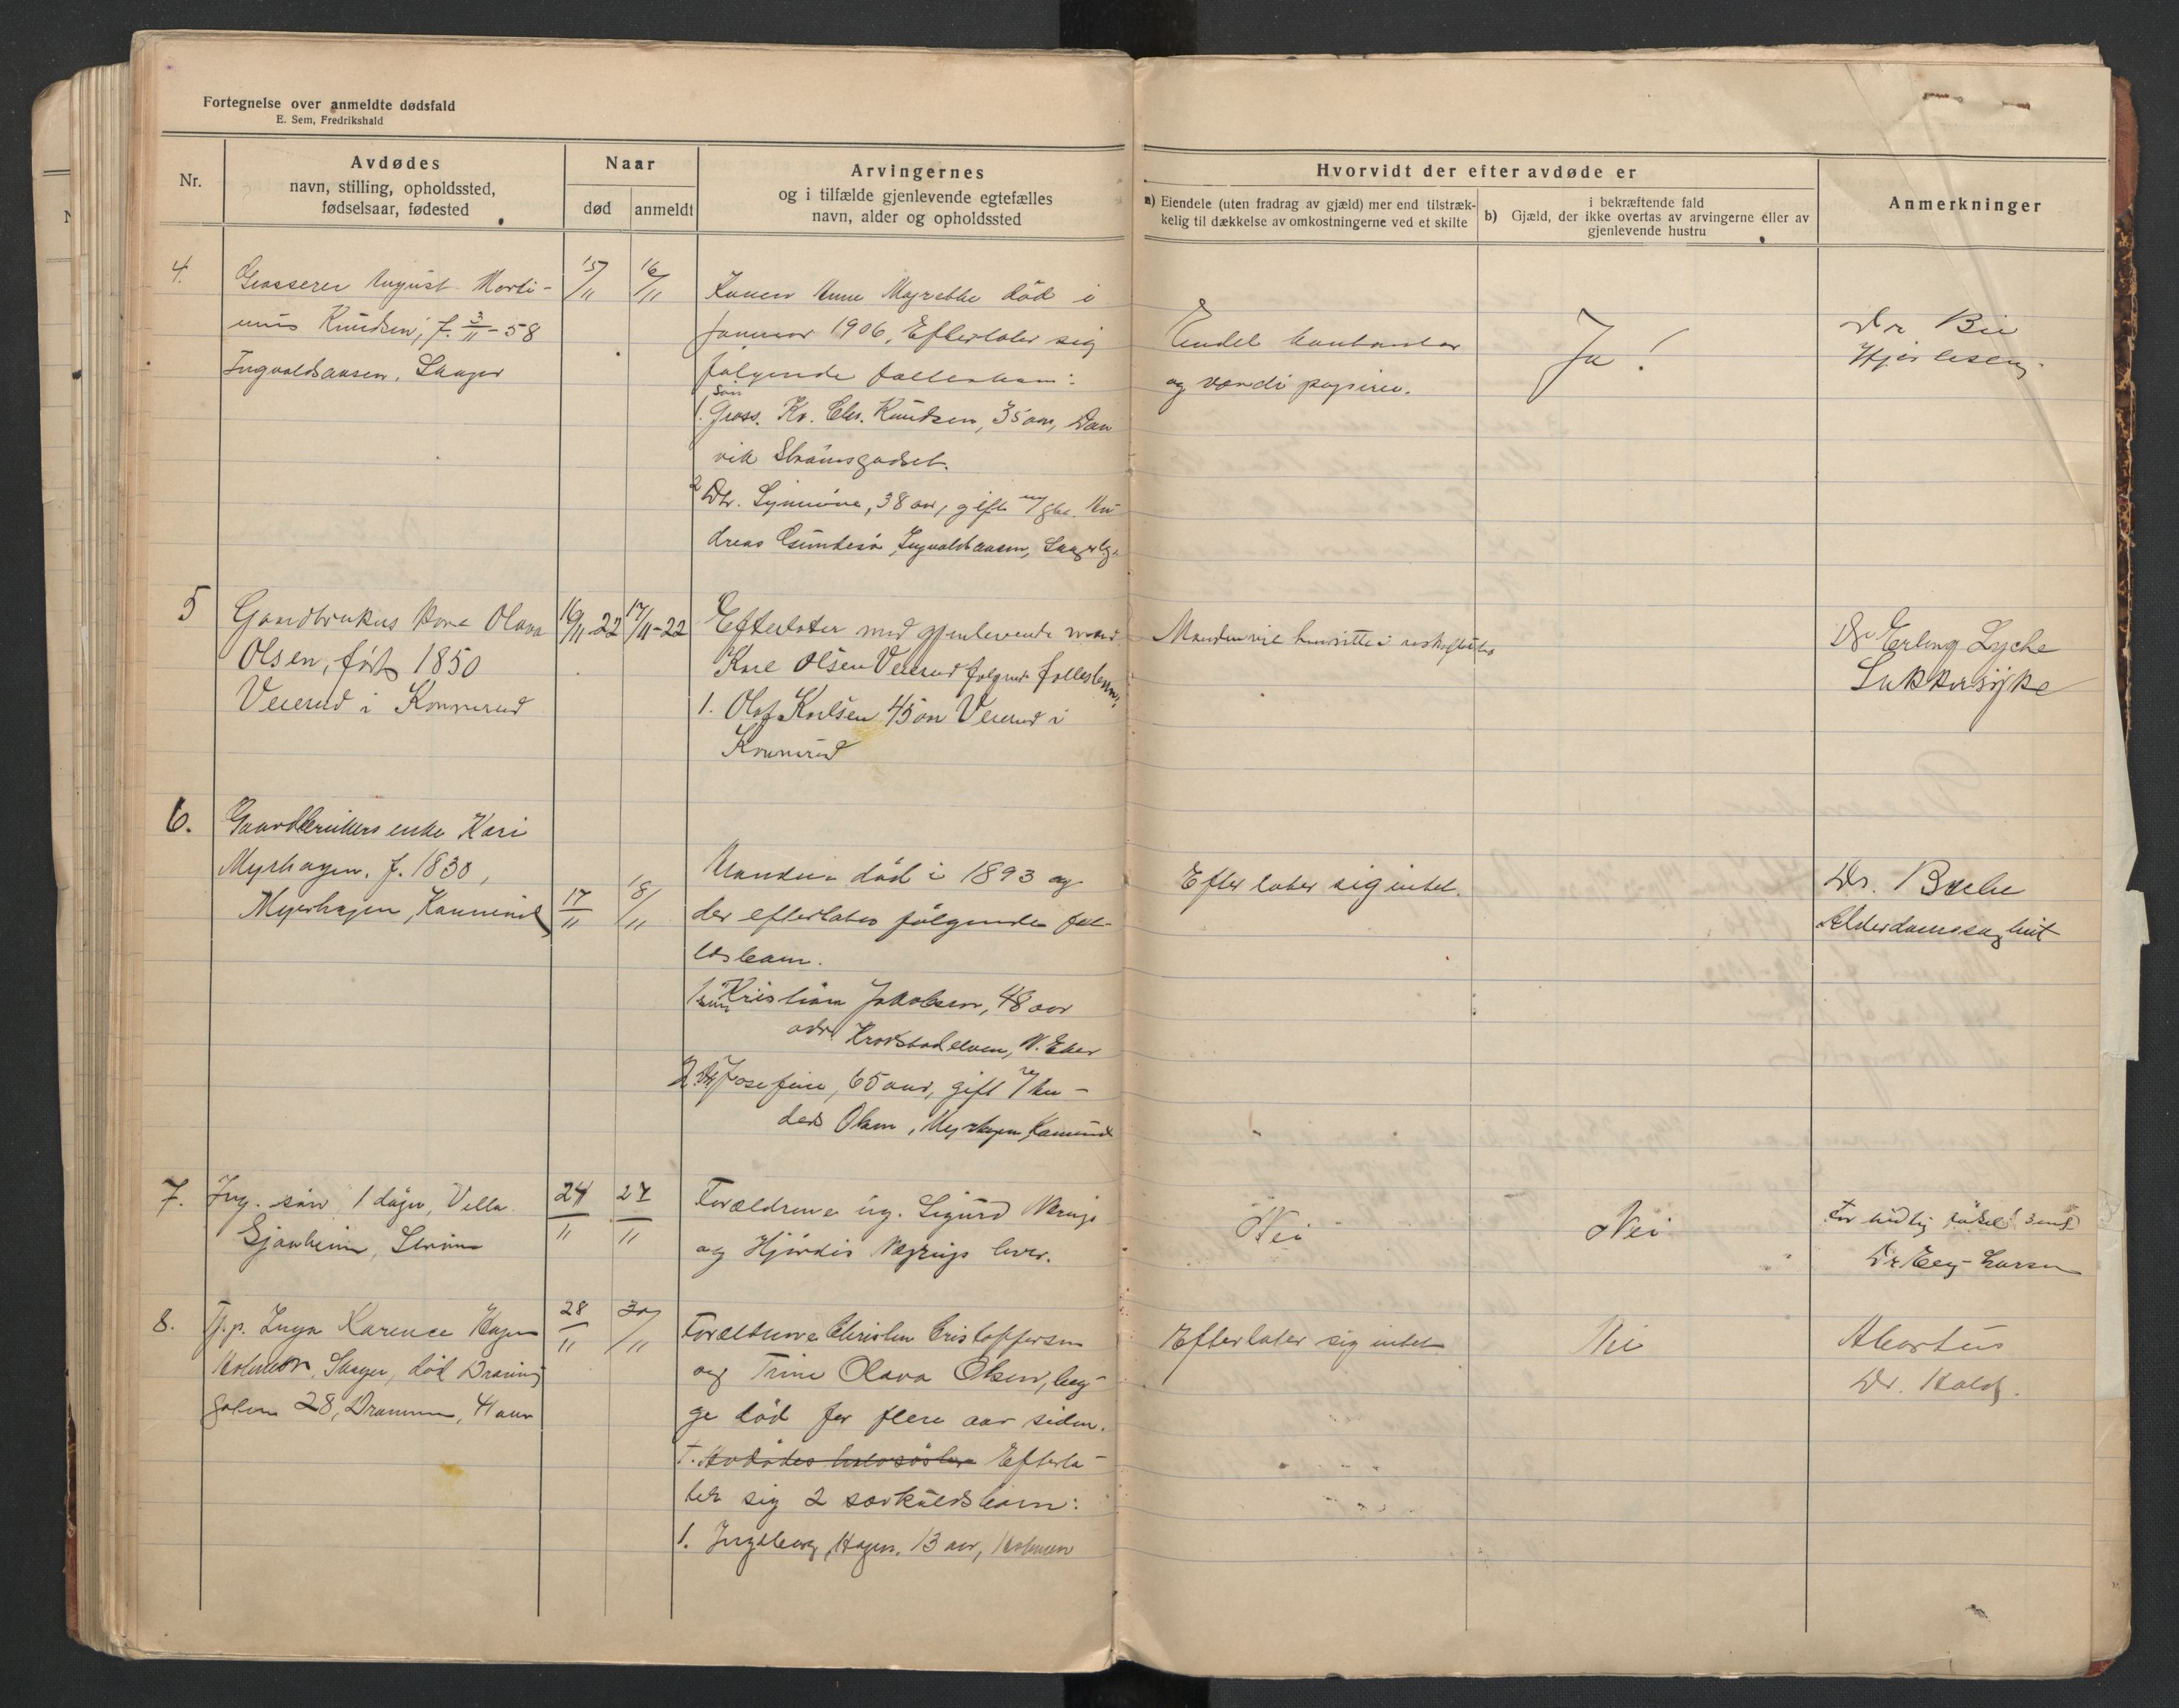 Fortegnelse over anmeldte dødsfald
E. Sem, Fredrikshald
Nr.
Avdødes
navn, stilling, opholdssted,
fødselsaar, fødested
Naar
død
anmeldt
Arvingernes
og i tilfælde gjenlevende egtefælles
navn, alder og opholdssted
Hvorvidt der efter avdøde er
a) Eiendele (uten fradrag av gjæld) mer end tilstræk-
kelig til dækkelse av omkostningerne ved et skifte
i bekræftende fald
b) Gjæld, der ikke overtas av arvingerne eller av
gjenlevende hustru
Anmerkninger
4.
Grosserer August Marti-
nius Knudsen, f. 3/11-58
Ingvaldsaasen, Skoger
15/11
16/11
Konen Anne Margrethe död i
januar 1906. Efterlater sig
følgende fællesbarn:
Sön
1. Gross. Kr. Chr. Knudsen, 35 aar, Dan
vik Strømsgodset.
2 Dtr. 38 aar, gift m/
dreas Ingvaldsaasen,
Endel kontanter
og værdi papirer.
Ja!
Dr Bie
5
Gaardbrukers kone Olava
Olsen, født 1850
Veierud i Konnerud
16/11-22
17/11-22
Efterlater med gjenlevende mand
Karl Olsen Veierud følgende fellesbarn:
1. Olaf Karlsen 45 aar Veierud i
Konnerud
Manden vil hensitte i uskiftet bo
Dr Erling Lyche
Sukkersyke
6.
Gaardbrukers enke Kari
Myrhagen. f. 1830,
Myrhagen, Konnerud
17/11
18/11
Manden död i 1893 og
der efterlates følgende fæl-
lesbarn.
1 sön Kristian Jakobsen, 48 aar
adr. Krokstadelven, N. Eker
2 Dtr Josefine, 65 aar, gift m/ An-
ders Olsen, Myrhagen, Konnerud
Efterlater sig intet.
Dr. Bache
Alderdomssvakhet
7.
Ing. sön 1 dager, Villa
Strøm
24/11
27/11
Forældrene ing. Sigurd
og Hjördis lever.
Nei
Nei
For tidlig födsel 3 mnd
Dr Eeg-Larsen
8.
Tj.p. Inga Karense Hagen
Holmen, Skoger, död
28, Drammen, 41 aar
28/11
30/11
Forældrene Christen Cristoffersen
og Trine Olava Olsen, beg-
ge död for flere aar siden.
1. Avdödes halvsöster Efterla-
ter sig 2 særkuldsbarn:
1. Ingeborg Hagen. 13 aar, Holmen
Efterlater sig intet
Nei
Abortus
Dr. Holst.